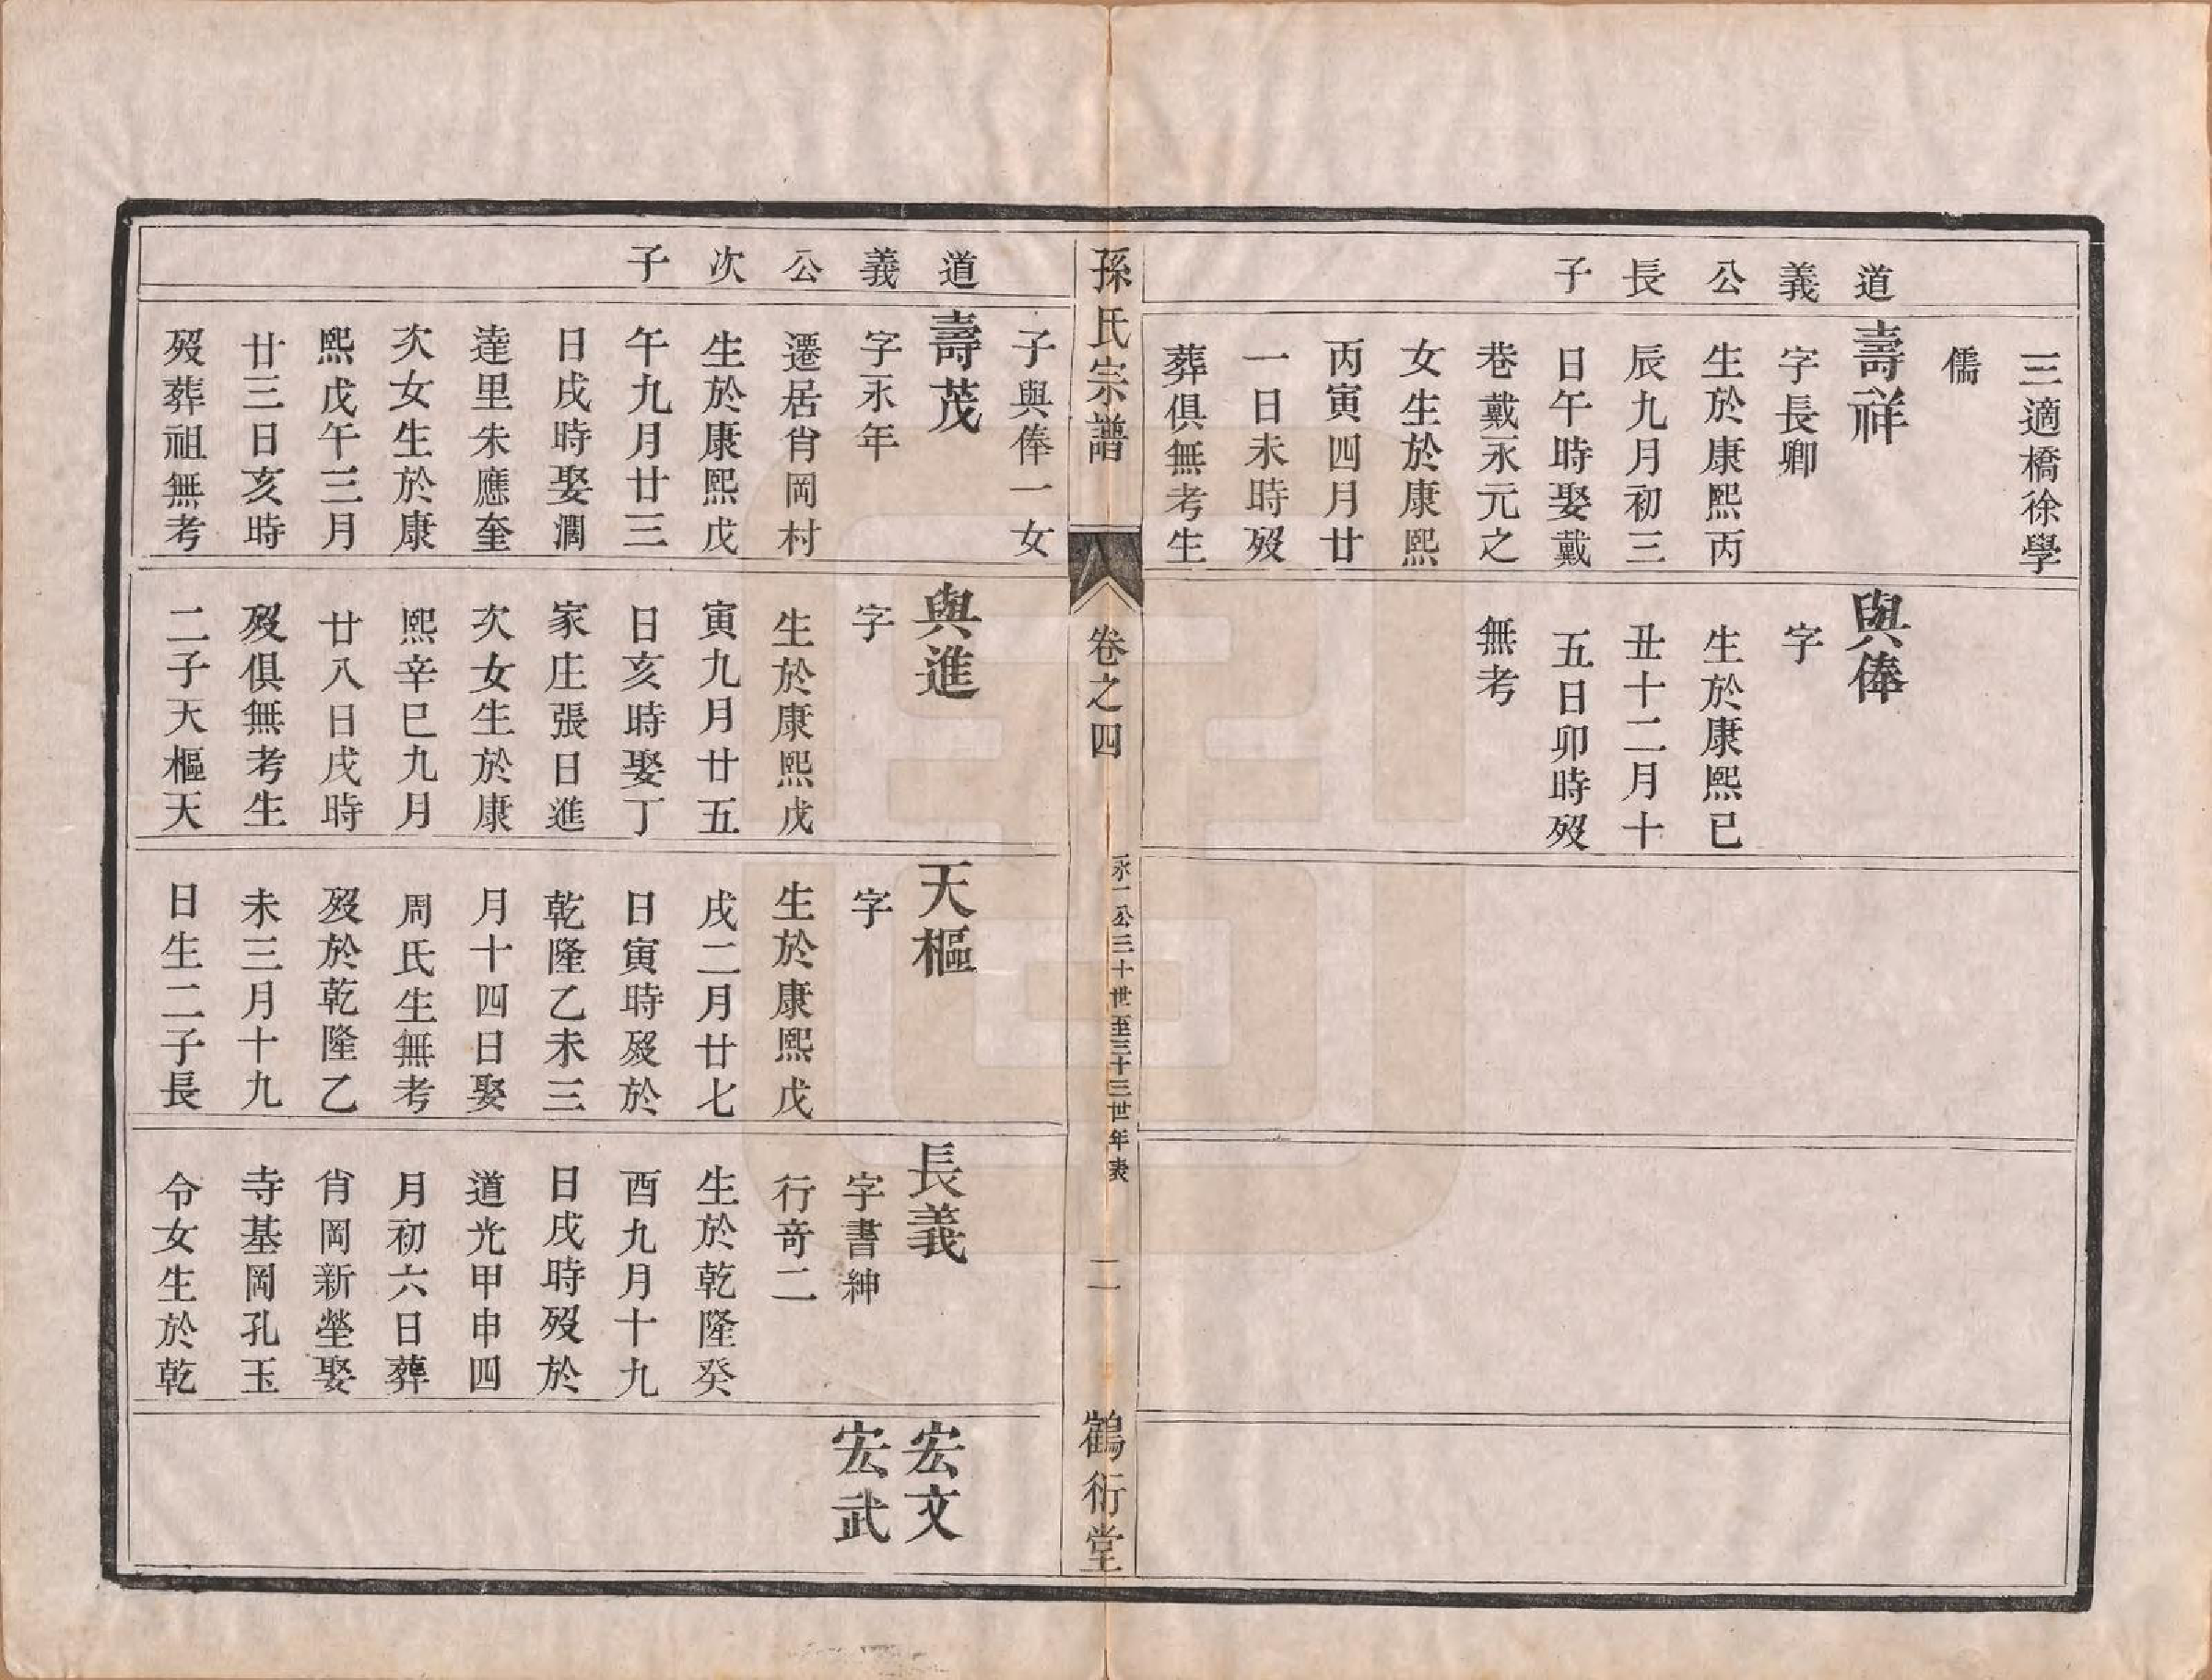 道義公長子
三適橋徐學
儒
壽祥
字長卿
生於康熙丙
辰九月初三
日午時娶戴
巷戴永元之
女生於康熙
丙寅四月廿
一日未時歿
葬俱無考生
與俸
字
生於康熙已
丑十二月十
五日卯時歿
無考
孫氏宗譜
卷之四
永一公三十世至三十三世年表
二
鶴衍堂
道義公次子
子與俸一女
壽茂
字永年
遷居肖岡村
生於康熙戊
午九月廿三
日戌時娶澗
達里朱應奎
次女生於康
熙戊午三月
廿三日亥時
歿葬祖無考
與進
字
生於康熙戊
寅九月廿五
日亥時娶丁
家庄張日進
次女生於康
熙辛巳九月
廿八日戌時
歿俱無考生
二子天樞天
天樞
字
生於康熙戊
戌二月廿七
日寅時歿於
乾隆乙未三
月十四日娶
周氏生無考
歿於乾隆乙
未三月十九
日生二子長
長義
字書紳
行竒二
生於乾隆癸
酉九月十九
日戌時歿於
道光甲申四
月初六日葬
肖岡新塋娶
寺基岡孔玉
令女生於乾
宏文
宏武